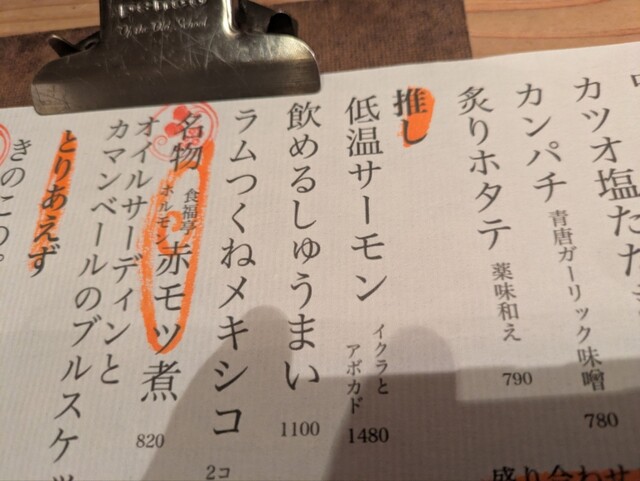 Of the Old School
カツオ塩たた
カンパチ 青唐ガーリック味噌
780
炙りホタテ 薬味和え
790
推し
低温サーモン イクラと
アボカド
1480
飲めるしゅうまい
1100
ラムつくねメキシコ
2コ
名物 食福亭 赤モツ煮
ホルモン
820
オイルサーディンと
カマンベールのブルスケッ
とりあえず
きのこの
盛り合わせ